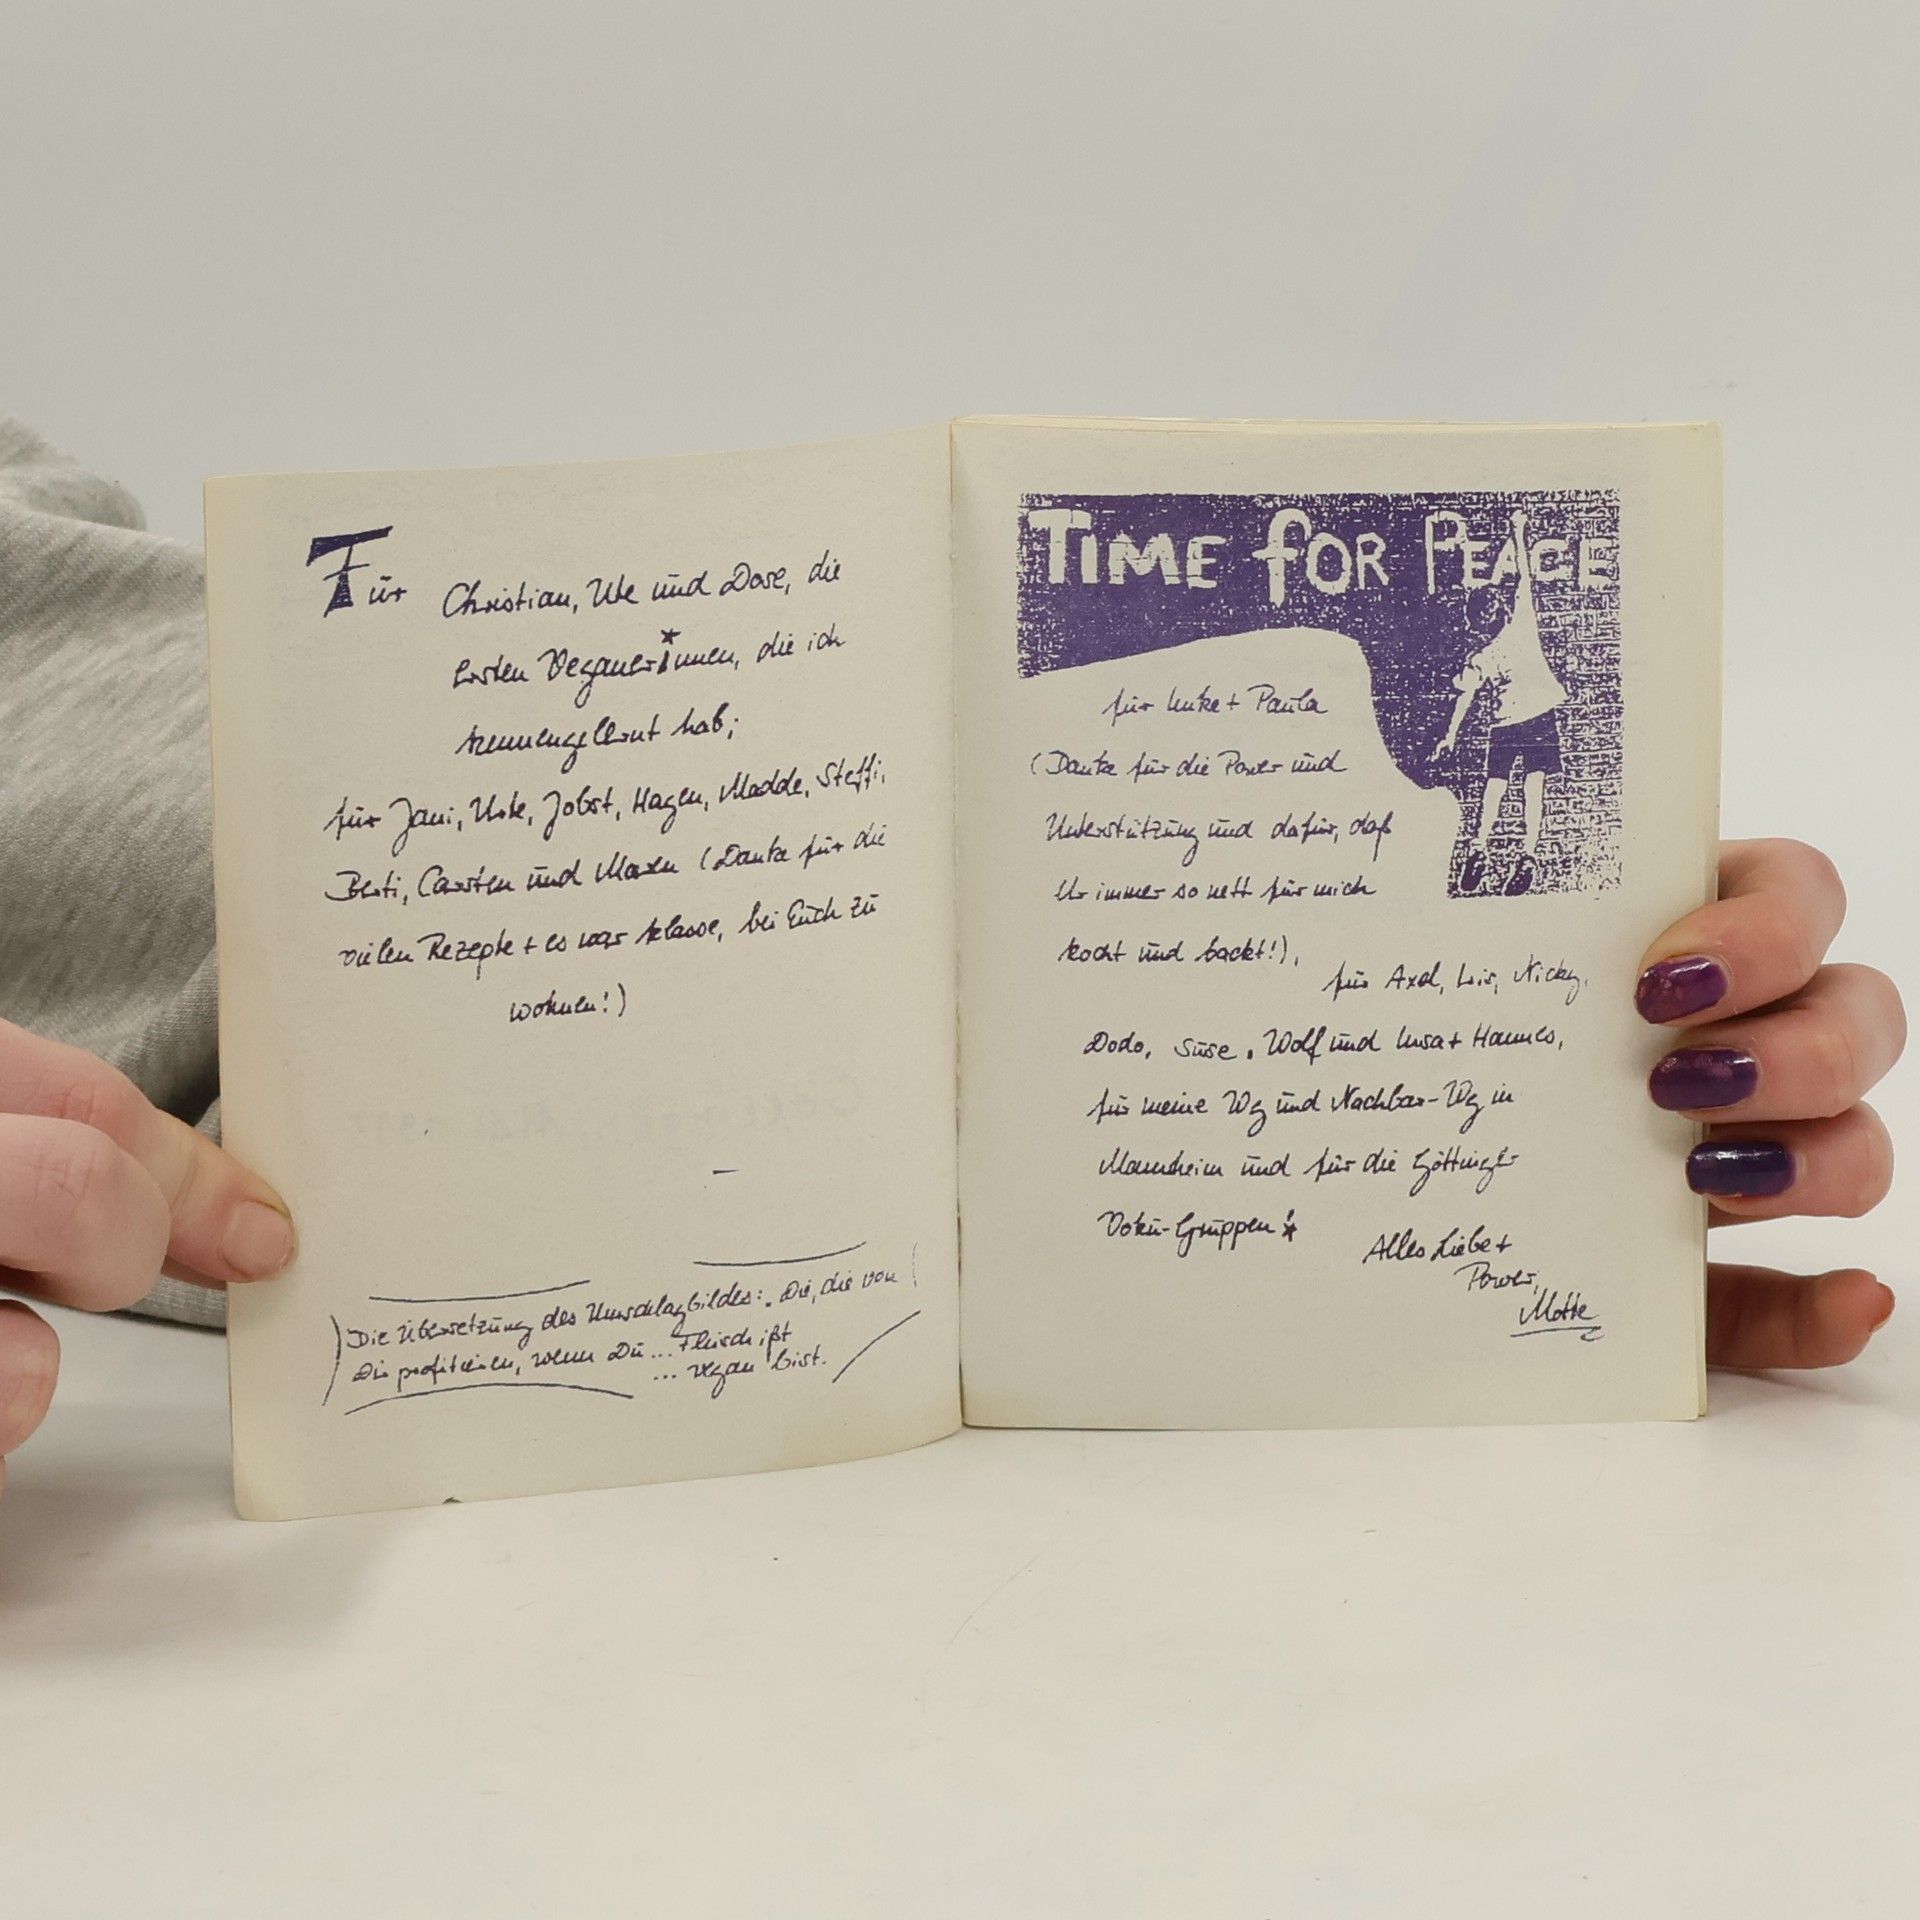 Für Christian, Ute und Dose, die
ersten Veganer*innen, die ich
kennengelernt hab;
für Jani, Urte, Jobst, Hagen, Madde, Steffi,
Berti, Carsten und Maren (Danke für die
vielen Rezepte + es war klasse, bei Euch zu
wohnen!)
(Die Übersetzung des Umschlagbildes: „Die, die von
Dir profitieren, wenn Du ... Fleisch ißt
... vegan bist.
TIME FOR PEACE
für Imke + Paula
(Danke für die Power und
Unterstützung und dafür, daß
Ihr immer so nett für mich
kocht und backt!),
für Axel, Nicky,
Dodo, Suse, Wolf und Insa + Hannes,
für meine Wg und Nachbar-Wg in
Mannheim und für die Göttinger
Vokü-Gruppen!
Alles Liebe +
Power,
Motte